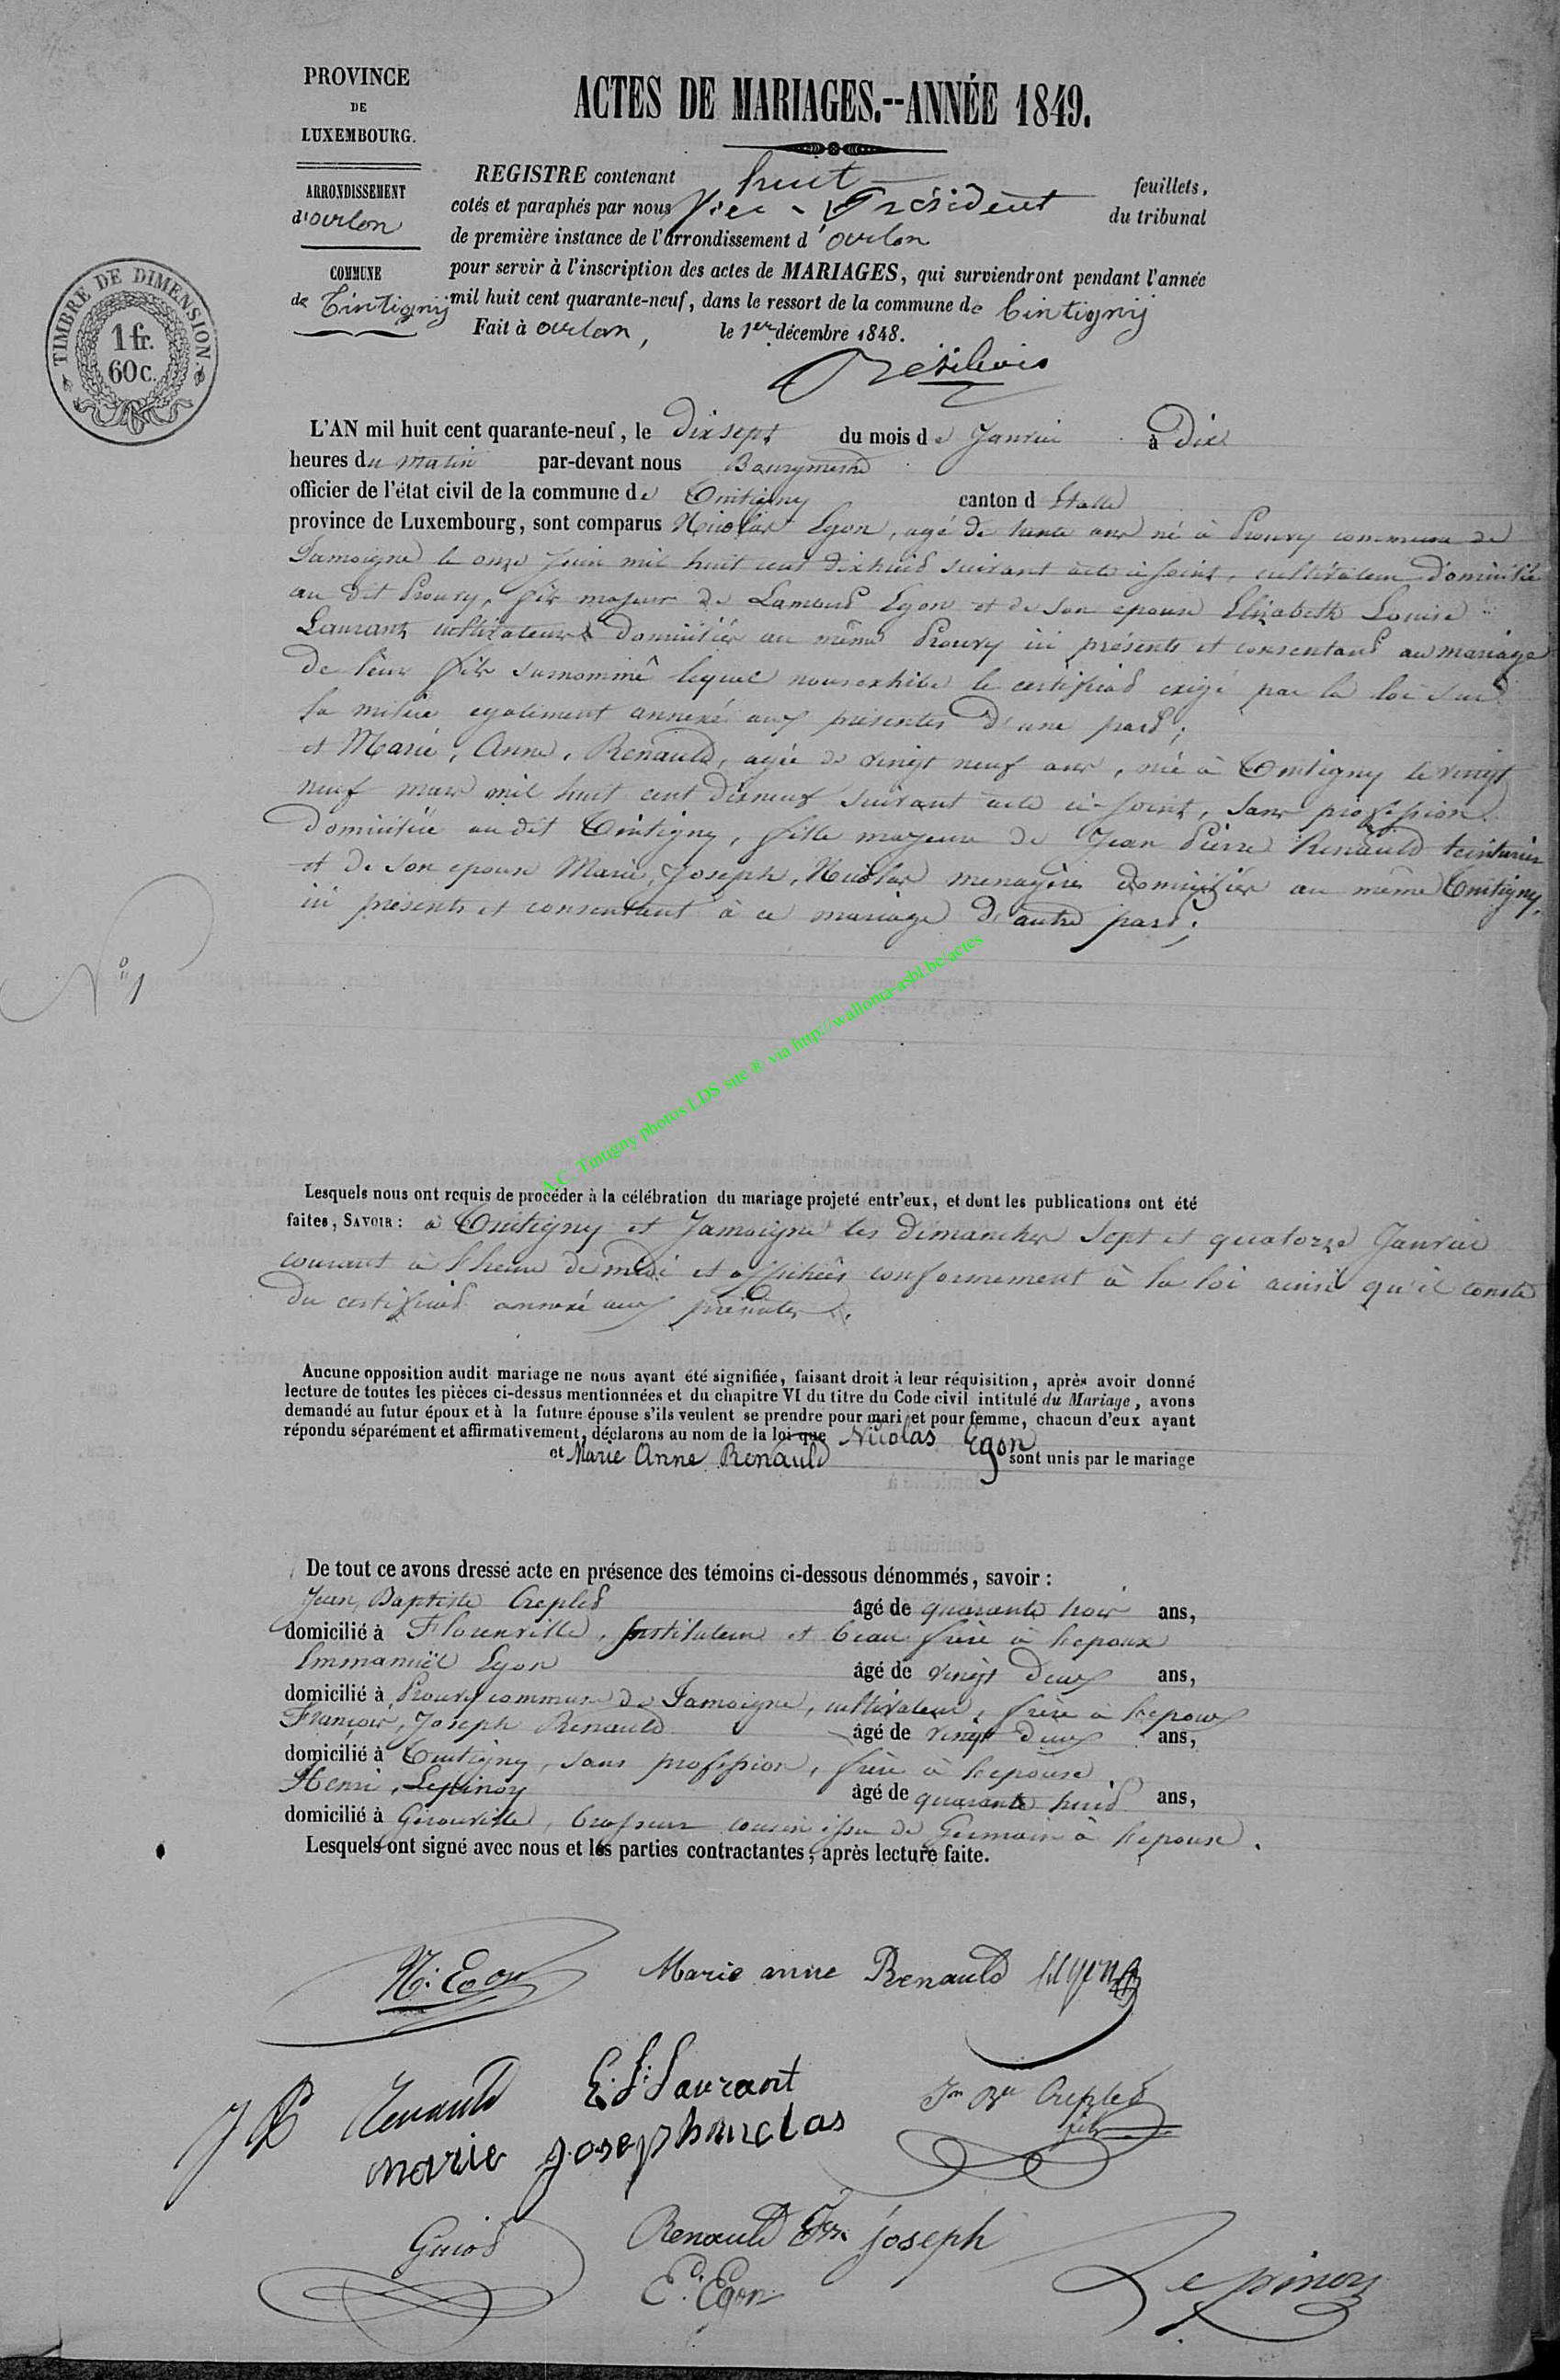 PROVINCE
DE
LUXEMBOURG.
ARRONDISSEMENT
d'arlon
COMMUNE
de Tintigny
TIMBRE DE DIMENSION.
1 fr.
60 c.
ACTES DE MARIAGES.--ANNÉE 1849.
REGISTRE contenant huit feuillets,
cotés et paraphés par nous Vice-Président du tribunal
de première instance de l'arrondissement d'arlon
pour servir à l'inscription des actes de MARIAGES, qui surviendront pendant l'année
mil huit cent quarante-neuf, dans le ressort de la commune de Tintigny
Fait à arlon, le 1er décembre 1848.
L'AN mil huit cent quarante-neuf, le dix sept du mois de Janvier à dix
heures du matin par-devant nous Bourgmestre
officier de l'état civil de la commune de Tintigny canton d'Etalle
province de Luxembourg, sont comparus Nicolas Egon, agé de trente ans né à Prouvy commune de
Jamoigne le onze Juin mil huit cent dixhuit suivant acte ci joint, cultivateur domicilié
au dit Prouvy, fils majeur de Lambert Egon et de son epouse Elisabeth Louise
Laurant cultivateurs domiciliés au même Prouvy ici présents et consentans au mariage
de leur fils surnommé lequel nous exhibe le certificat exigé par la loi sur
la milice egalement annexé aux présentes d'une part;
et Marie, Anne, Renauld, agée de vingt neuf ans, née à Tintigny le vingt
neuf mars mil huit cent dixneuf suivant acte ci-joint, sans profession
domiciliée audit Tintigny, fille majeure de Jean Pierre Renauld teinturier
et de son epouse Marie, Joseph, Nicolas menagère domiciliés au même Tintigny,
ici présents et consentant à ce mariage d'autre part;
N° 1
A.C. Tintigny photos LDS site ® via http://wallonia-asbl.be/actes
Lesquels nous ont requis de procéder à la célébration du mariage projeté entr'eux, et dont les publications ont été
faites, SAVOIR: à Tintigny et Jamoigne les dimanches sept et quatorze Janvier
courant à l'heure de midi et affichées conformement à la loi ainsi qu'il conste
du certificat annexé aux présentes.
Aucune opposition audit mariage ne nous ayant été signifiée, faisant droit à leur réquisition, après avoir donné
lecture de toutes les pièces ci-dessus mentionnées et du chapitre VI du titre du Code civil intitulé du Mariage, avons
demandé au futur époux et à la future épouse s'ils veulent se prendre pour mari et pour femme, chacun d'eux ayant
répondu séparément et affirmativement, déclarons au nom de la loi que Nicolas Egon
et Marie Anne Renauld sont unis par le mariage
De tout ce avons dressé acte en présence des témoins ci-dessous dénommés, savoir:
Jean Baptiste Creplet âgé de quarante trois ans,
domicilié à Florenville, Instituteur et beau frère à l'epoux
Emmanuël Egon âgé de vingt deux ans,
domicilié à Prouvy commune de Jamoigne, cultivateur, frère à l'epoux
François, Joseph Renauld âgé de vingt deux ans,
domicilié à Tintigny, sans profession, frère à l'epouse
Henri, Lepinoy âgé de quarante huit ans,
domicilié à Gérouville, brasseur cousin issu de Germain à l'epouse.
Lesquels ont signé avec nous et les parties contractantes, après lecture faite.
N. Egon Marie anne Renauld
J P Renauld E. L. Laurant Jn Bte Creplet
marie joseph nuclas
Guiot Renauld Frs joseph
E. Egon Lepinoy